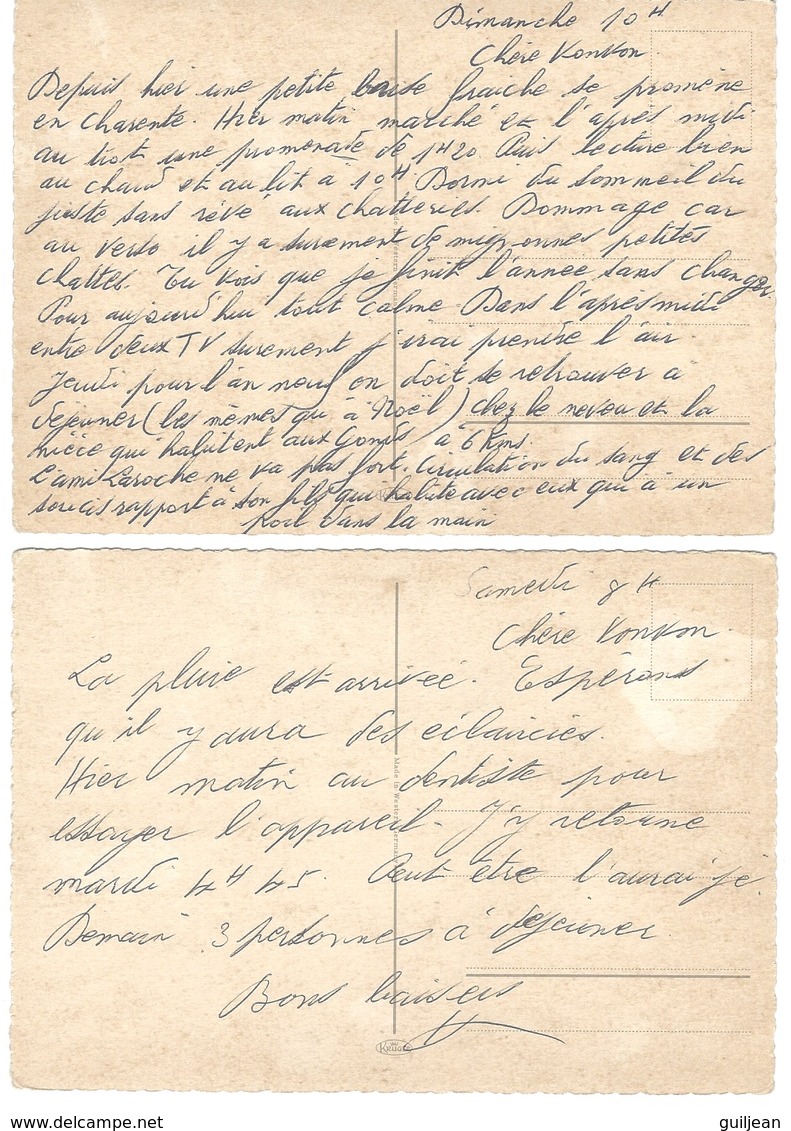 Dimanche 10H
Chère Konkon.
Depuis hier une petite brise fraiche se promène
en Charente. Hier matin marché et l'après midi
au trot une promenade de 1H20. Puis lecture bien
au chaud et au lit à 10H. Dormi du sommeil du
juste sans rêve aux chatteries. Dommage car
au verso il y a surement de mignonnes petites
chattes. Tu vois que je finit l'année sans changer.
Pour aujourd'hui tout calme Dans l'après midi
entre deux TV surement j'irai prendre l'air
Jeudi pour l'an neuf on doit se retrouver à
dejeuner (les mêmes qu'à Noël) chez le neveu et la
nièce qui habitent aux Gonds à 6 Kms.
L'ami Laroche ne va pas fort. Circulation du sang et des
soucis rapport à son fils qui habite avec eux qui a un
poil dans la main
Samedi 8H
Chère Konkon.
La pluie est arrivée. Espérons
qu'il y aura des eclaircies.
Hier matin au dentiste pour
essayer l'appareil. J'y retourne
mardi 4H45. Peut être l'aurai je.
Demain 3 personnes à dejeuner.
Bons baisers
Made in Western Germany
KRÜGER
guiljean